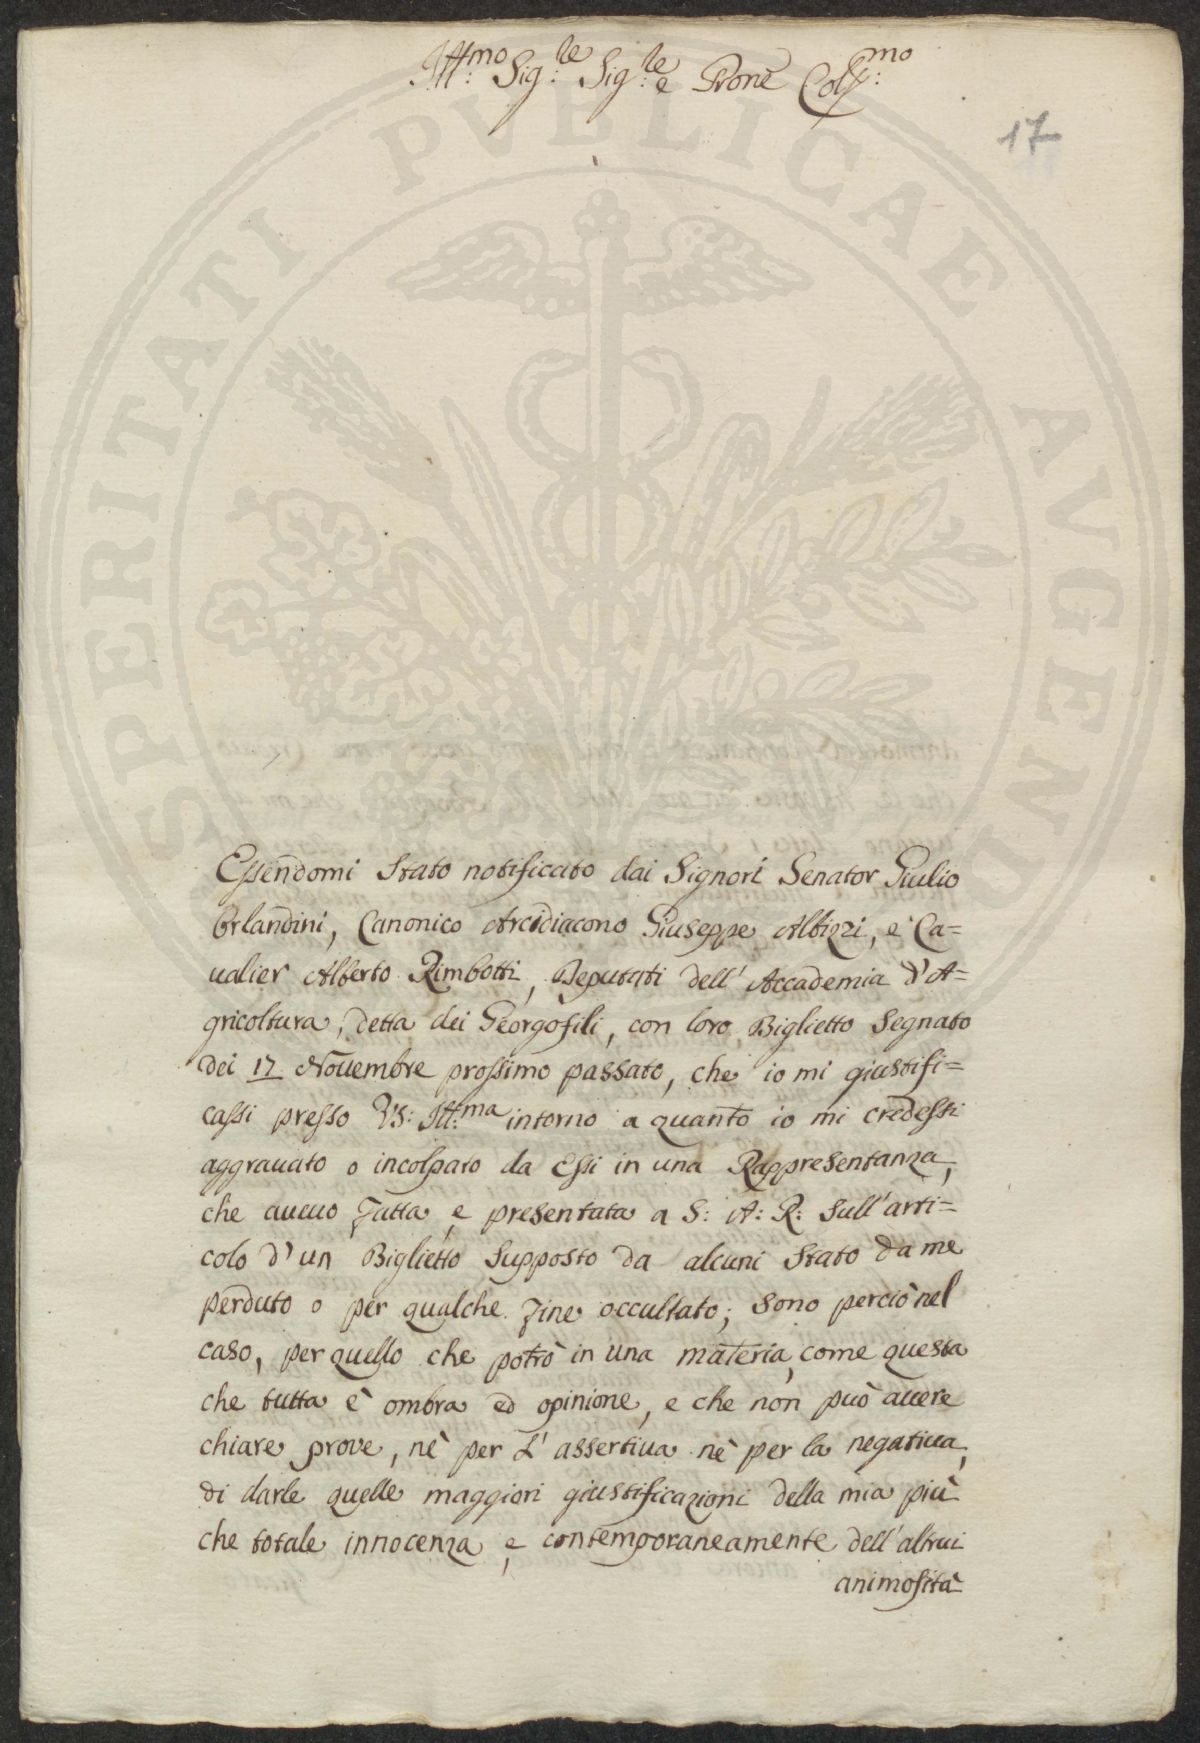 Ill:mo Sig:re Sig:re e Prone Col:mo
17
PROSPERITATI PVBLICAE AVGENDAE
Essendomi stato notificato dai Signori Senator Giulio
Orlandini, Canonico Arcidiacono Giuseppe Albizzi, e Ca=
ualier Alberto Rimbotti, Deputati dell' Accademia d'A=
gricoltura, detta dei Georgofili, con loro Biglietto segnato
dei 17 Nouembre prossimo passato, che io mi giustifi=
cassi presso VS: Ill:ma intorno a quanto io mi credessi
aggrauato o incolpato da Essi in una Rappresentanza,
che aueuo fatta, e presentata a S: A: R: sull' arti=
colo d' un Biglietto supposto da alcuni stato da me
perduto o per qualche fine occultato; sono perciò nel
caso, per quello che potrò in una materia, come questa
che tutta è ombra ed opinione, e che non può auere
chiare proue, nè per l' assertiua nè per la negatiua,
di darle quelle maggiori giustificazioni della mia più
che totale innocenza, e contemporaneamente dell' altrui
animosità